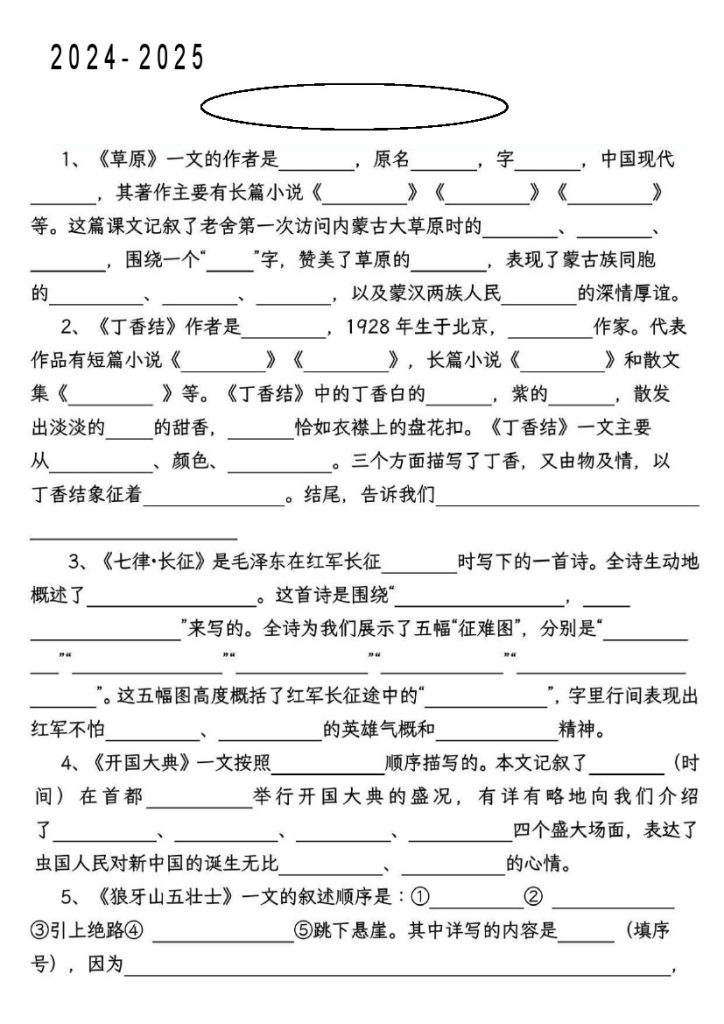 2024-2025
1、《草原》一文的作者是______，原名______，字______，中国现代
______，其著作主要有长篇小说《________》《________》《________》
等。这篇课文记叙了老舍第一次访问内蒙古大草原时的_______、_______、
_______，围绕一个“____”字，赞美了草原的_______，表现了蒙古族同胞
的_________、_______、_______，以及蒙汉两族人民_______的深情厚谊。
2、《丁香结》作者是________，1928 年生于北京，________作家。代表
作品有短篇小说《________》《________》，长篇小说《________》和散文
集《________ 》等。《丁香结》中的丁香白的______，紫的______，散发
出淡淡的____的甜香，______恰如衣襟上的盘花扣。《丁香结》一文主要
从__________、颜色、__________。三个方面描写了丁香，又由物及情，以
丁香结象征着_____________。结尾，告诉我们_________________________
____________________
3、《七律·长征》是毛泽东在红军长征_______时写下的一首诗。全诗生动地
概述了________________。这首诗是围绕“________________，____
______________”来写的。全诗为我们展示了五幅“征难图”，分别是“________
___”“______________”“____________”“____________”“________________
______”。这五幅图高度概括了红军长征途中的“____________”，字里行间表现出
红军不怕_________、__________的英雄气概和____________精神。
4、《开国大典》一文按照___________顺序描写的。本文记叙了_______（时
间）在首都__________举行开国大典的盛况，有详有略地向我们介绍
了__________、__________、__________、__________四个盛大场面，表达了
虫国人民对新中国的诞生无比__________、__________的心情。
5、《狼牙山五壮士》一文的叙述顺序是：①_________② ____________
③引上绝路④ _____________⑤跳下悬崖。其中详写的内容是_____（填序
号），因为____________________________________________________，